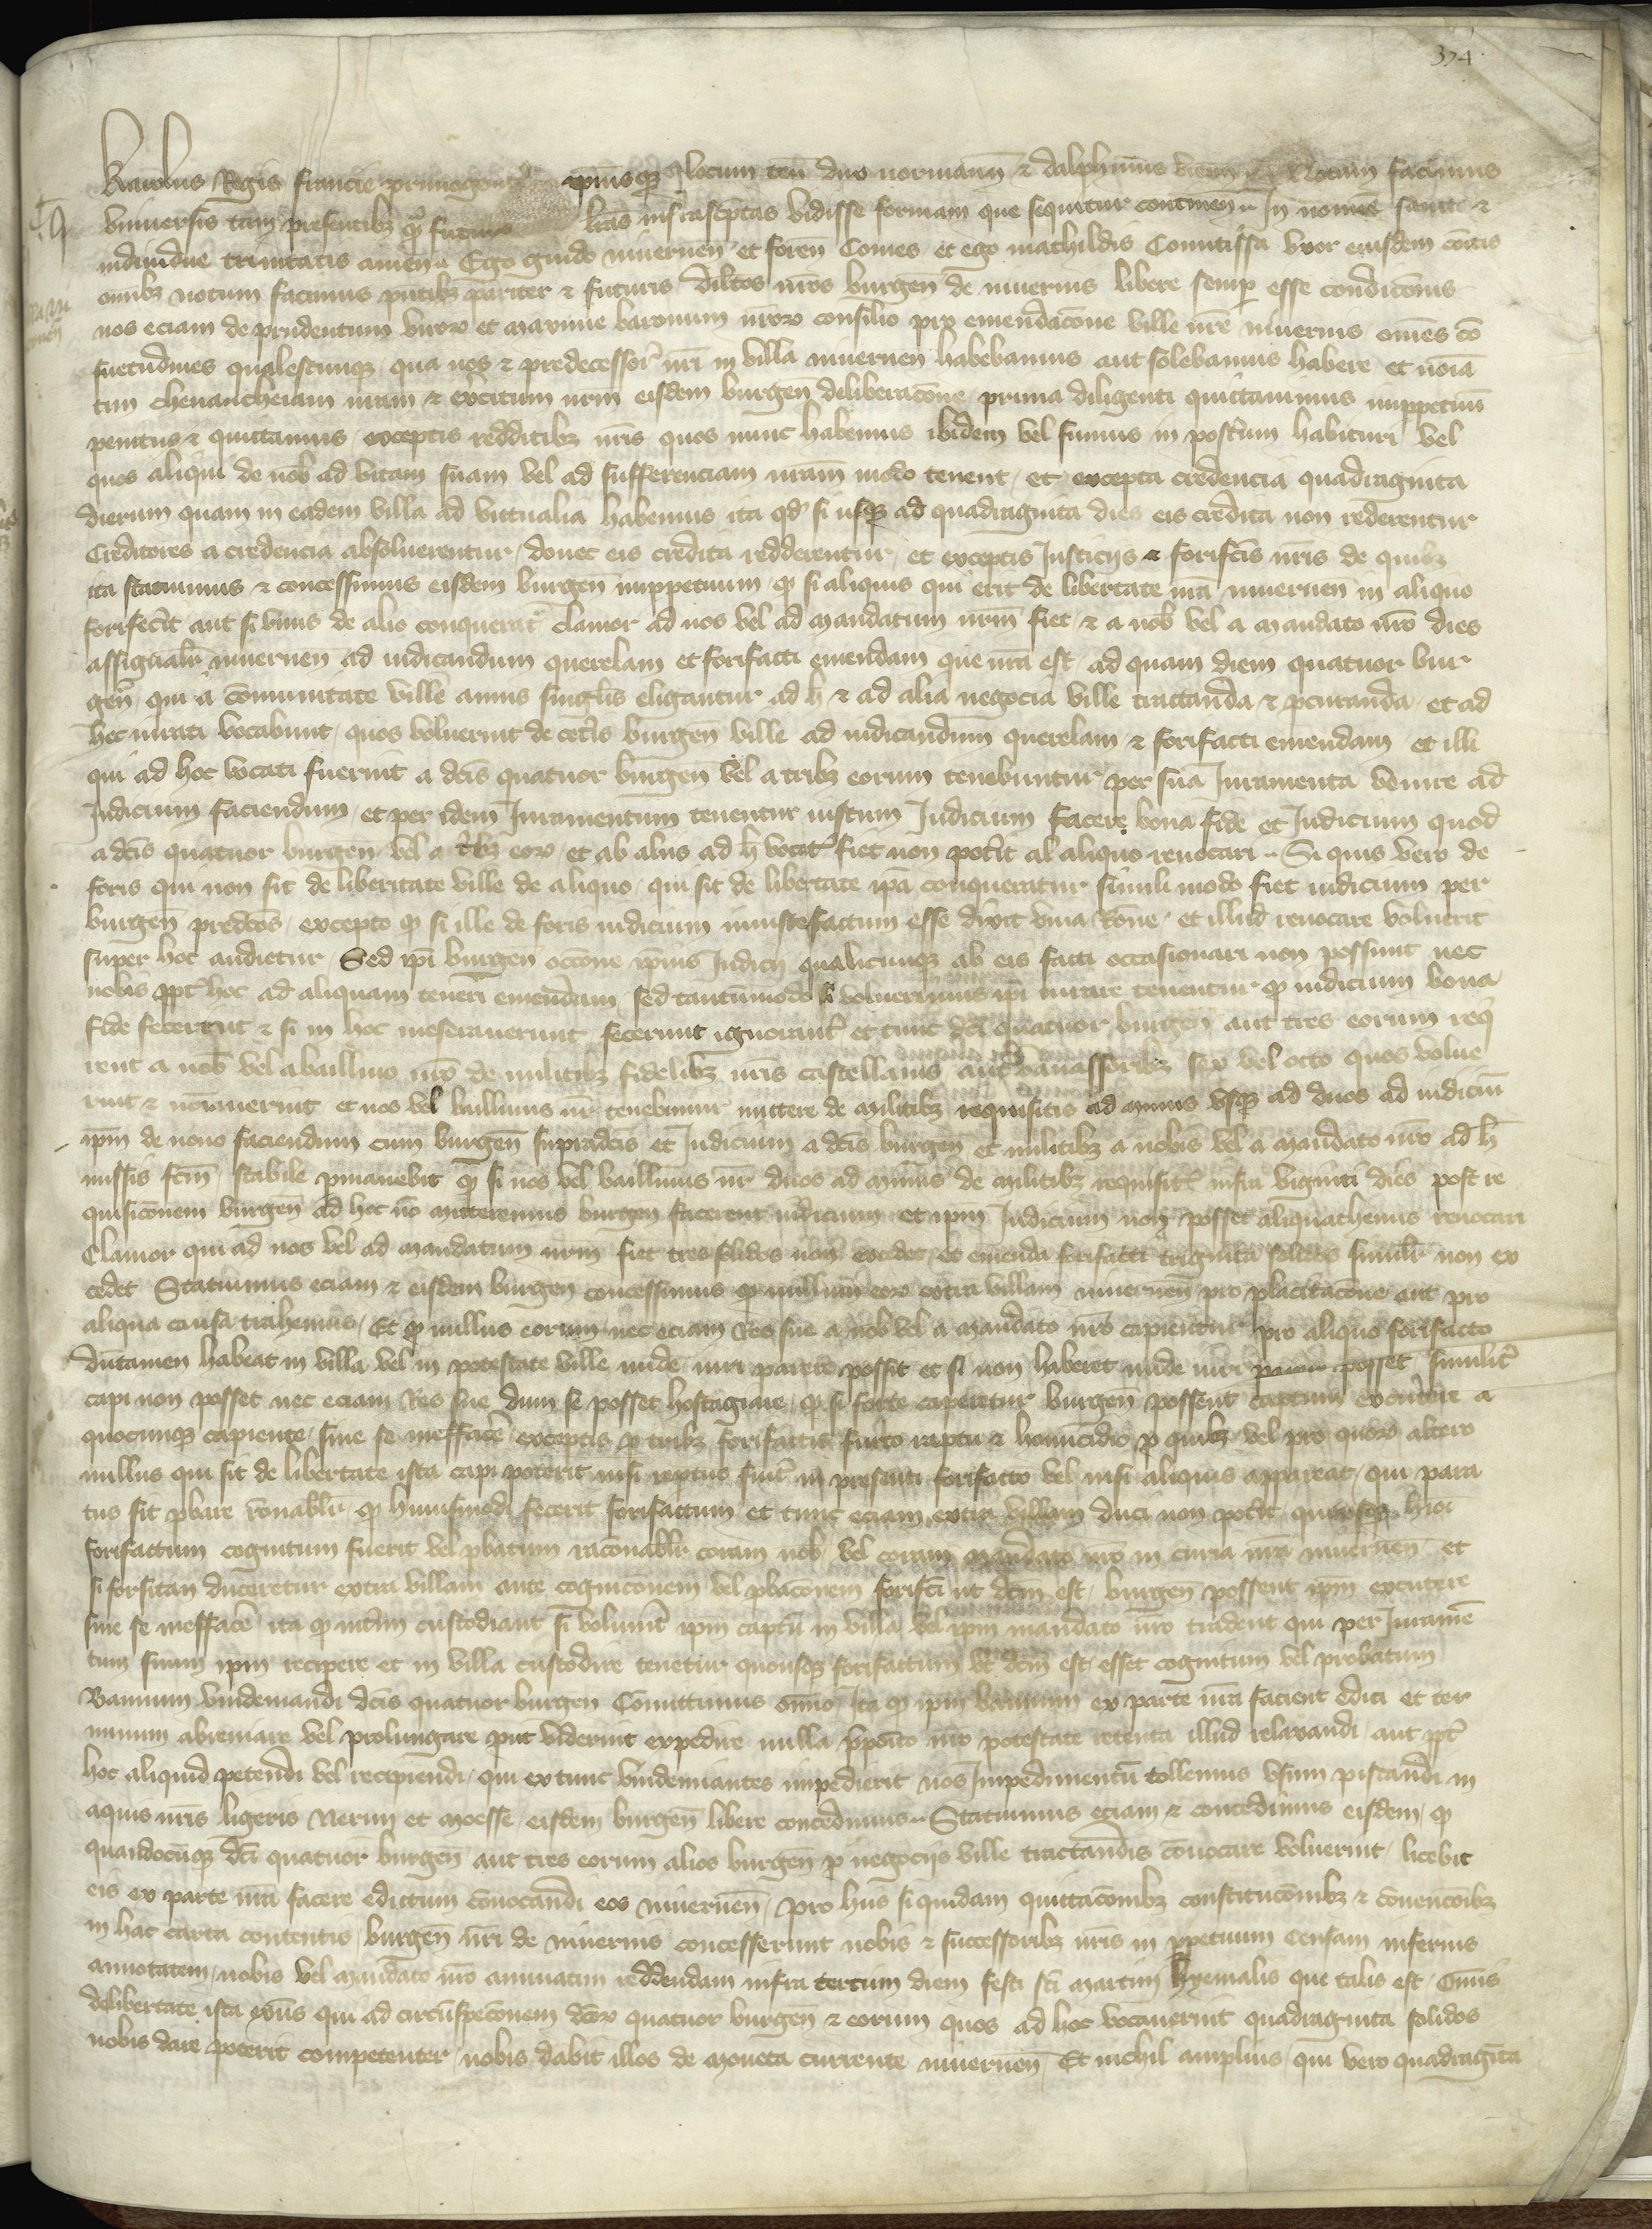 374
Karolus Regis francie primogenitꝰ ipiusqꝫ locum teñ dux normann̄ & dalphinus vienn̄ Notum facimus
vniuersis tam presentibꝫ qͣꝫ futuris lrãs infrasc̃ptas vidisse formam que sequitur continen̄ In nomine sancte &
indiuidue trinitatis amen Ego guido niuernen̄ et foren̄ Comes et ego mathildis Comitissa vxor eiusdem com̄itis
om̄ibꝫ notum facimus pñtibꝫ pariter & futuris dilc̄os nr̄os burgen̄ de niuernis libere semp̱ esse condic̄onis
nos eciam de prudentum viroꝝ et maxime baronum nr̄oꝝ consilio pro emendac̄one ville nr̄e niuernis om̄es cō
suetudines qualescunqꝫ qua nos & predecessoꝝ nr̄i in villa niuernen̄ habebamus aut solebamus habere et noīa
tim cheuaucheiam nr̄am & exc̄itum nr̄m eisdem burgen̄ deliberac̄one prima diligenti quictauimus imppetuū
penitus & quittamus exceptis redditibꝫ nr̄is quos nunc habemus ibidem vel sumus in post̃um habituri vel
quos aliqui de nob̄ ad vitam suam vel ad sufferenciam nr̄am modo tenent et excepta credencia quadraginta
dierum quam in eadem villa ad victualia habemus ita qd̄ si usqꝫ ad quadraginta dies eis credita non rederentur
Creditores a credencia absoluerentur donec eis credita redderentur et exceptis Justicijs & forifc̄is nr̄is de quibꝫ
ita statuimus & concessimus eisdem burgen̄ imppetuum ꝙ si aliquis qui erit de libertate nr̄a niuernen̄ in aliquo
forifec̄it aut si vnus de alio conquerat̃ clamor ad nos vel ad mandatum nr̄m fiet & a nob̄ vel a mandato nr̄o dies
assignabr̄ niuernen̄ ad iudicandum querelam et forifacti emendam que nr̄a est ad quam diem quatuor bur
gen̄ qui a cōmunitate ville annis singl̄is eligantur ad h̄ & ad alia negocia ville tractanda & p̱curanda et ad
hec iurati vocabunt quos voluerint de cet̃is burgen̄ ville ad iudicandum querelam & forifacti emendam et illi
qui ad hoc vocati fuerint a dc̄is quatuor burgen̄ vel a tribꝫ eorum tenebuntur per sua Juramenta venire ad
Judicium faciendum et per idem Juramentum tenentur iustum Judicium facere bona fide et Judicium quod
a dc̄is quatuor burgen̄ vel a tribꝫ eoꝝ et ab aliis ad h̄ vocat̃ fiet non pot̃it al aliquo reuocari Si quis vero de
foris qui non sit de libertate ville de aliquo qui sit de libertate ip̄a conqueratur simili modo fiet iudicium per
burgen̄ predc̄os excepto ꝙ si ille de foris iudicium iniuste factum esse dixit viua rōne et illud reuocare voluerit
super hoc audietur Sed ip̄i burgen̄ occōne ipius Judicij qualicunqꝫ ab eis facti occasionari non possunt nec
nobis ꝓpt̃ hoc ad aliquam teneri emendam sed tantūmodo si voluerimus ip̄i iurare tenentur ꝙ iudicium bona
fide fecerint & si in hoc meserauerunt fecerunt ignorant̃ et tunc dc̄i quatuor burgen̄ aut tres eorum req̃
rent a nob̄ vel a baillivo nr̄o de militibꝫ fidelibꝫ nr̄is castellanis aut vauassoribꝫ sex vel octo quos volue
rint & noīauerint et nos vel baillinus nr̄ tenebimur mittere de militibꝫ requisitis ad minus vsqꝫ ad duos ad iudiciū
ip̄m de nouo faciendum cum burgen̄ supradc̄is et Judicium a dc̄is burgen̄ et militibꝫ a nobis vel a mandato nr̄o ad h̄
missis fc̄m stabile p̱manebit ꝙ si nos vel baillinus nr̄ duos ad minus de militibꝫ requisit̃ infra viginti dies post re
quisic̄onem burgen̄ ad hoc nō mitteremus burgen̄ facerent iudicium et ipm̄ Judicium non posset aliquathenus reuocari
Clamor qui ad nos vel ad mandatum nr̄m fiet tres solidos non excedet et emenda forifacti triginta solidos simil̄r non ex
cedet Statuimus eciam & eisdem burgen̄ concessimus ꝙ nullum eoꝝ extra villam niuernen̄ pro placitac̄one aut pro
aliqua causa trahemus Et ꝙ nullus eorum nec eciam Res sue a nob̄ vel a mandato nr̄o capientur pro aliquo forifacto
dūtamen habeat in villa vel in potestate ville unde iuri parere possit et si non haberet unde iuri posset similit̃
capi non posset nec eciam Res sue dum se posset hostagiare ꝙ si forte caperetur burgen̄ possent captum excutere a
quocunqꝫ capiente sine se meffac̄e exceptis p̱ tribꝫ forifactis furto raptu & homicidio p̱ quibꝫ vel pro quoꝝ altero
nullus qui sit de libertate ista capi poterit nisi reptus fuit̃ in presenti forifacto vel nisi aliquis appareat qui para
tus sit p̱bare rōnabl̄r ꝙ huiusmodi fecerit forifactum et tunc eciam extra villam duci non pot̃it quousqꝫ hīoi
forifactum cognitum fuerit vel p̱batum racōnabl̄r coram nob̄ vel coram mandato nr̄o in curia nr̄a niuernen̄ et
si forsitan duceretur extra villam ante cognic̄onem vel p̱bac̄onem forifc̄i ut dc̄m est burgen̄ possent ip̄m excutere
sine se meffac̄e ita ꝙ int̃im custodiant si volunt̃ ip̄m captū in villa vel ip̄m mandato nr̄o tradent qui per Juramē
tum suum ip̄m recipere et in villa custodire tenetur quousqꝫ forifactum ut dc̄m est esset cognitum vel probatum
Bannum vindemiandi dc̄is quatuor burgen̄ Comittimus om̄io Ita ꝙ ip̄m bannum ex parte nr̄a facient edici et ter
minum abreuiare vel prolungare put viderint expedire nulla p̱pōito nr̄o potestate retenta illud relaxandi aut ꝓpt̃
hoc aliquid petendi vel recipiendi qui ex tunc vindemiantes impedierit nos Impedimentū tollemus vsum piscandi in
aquis nr̄is ligeris Nerim et moesse eisdem burgen̄ libere concedimus Statuimus eciam & concedimus eisdem ꝙ
quandocūqꝫ dc̄i quatuor burgen̄ aut tres eorum alios burgen̄ p̱ negocijs ville tractandis cōuocare voluerint licebit
eis ex parte nr̄a facere edictum cōuocandi eos niuernen̄ Pro hiis si quidam quittac̄onibꝫ constituc̄onibꝫ & cōuenc̄oibꝫ
in hac carta contentis burgen̄ nr̄i de niuernis concesserunt nobis & successoribꝫ nr̄is in p̱petuum Censam inferius
annotatem nobis vel mandato nr̄o annuatim reddendam infra tercium diem festi sc̄i martini hyemalis que talis est Om̄is
de libertate ista ex̄ns qui ad circūspec̄onem dc̄oꝝ quatuor burgen̄ & eorum quos ad hoc vocauerint quadraginta solidos
nobis dare poterit competenter nobis dabit illos de moneta currente niuernen̄ Et nichil amplius qui vero quadraginta